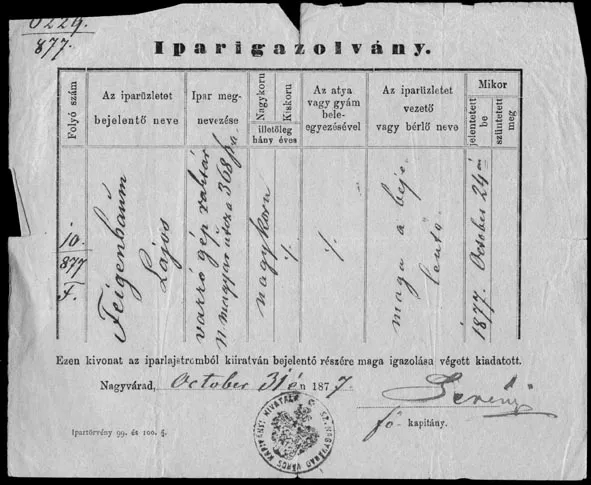 6224.
877.
Iparigazolvány.
Folyó szám
Az iparüzletet bejelentő neve
Ipar megnevezése
Nagykoru
Kiskoru
illetőleg hány éves
Az atya vagy gyám beleegyezésével
Az iparüzletet vezető vagy bérlő neve
Mikor
jelentetett be
szüntetett meg
10.
877
F.
Feigenbaum
Lajos
varró gép raktár
N magyar utcza 368
nagykoru
%
%
maga a beje
lentő
1877. October 24én
Ezen kivonat az iparlajstromból kiiratván bejelentő részére maga igazolása végett kiadatott.
Nagyvárad, October 31én 1877.
fő- kapitány.
Ipartörvény 99. és 100. §.
NAGYVÁRAD VÁROS KAPITÁNYI HIVATALA